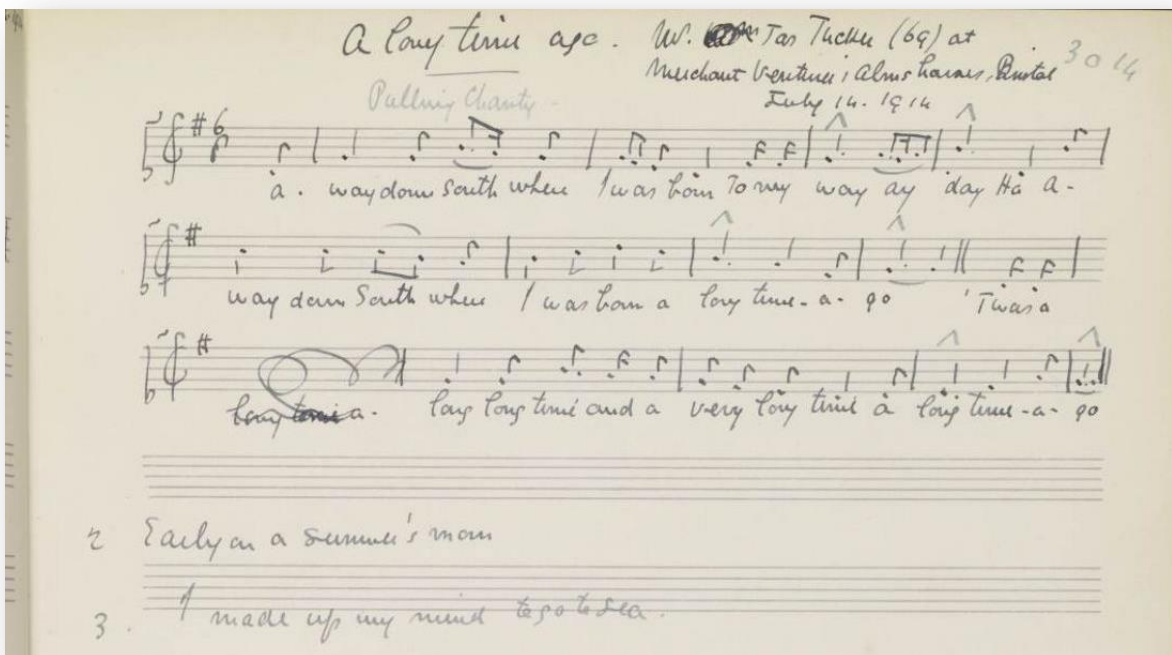 A long time ago. Mr. Jas Tucker (69) at
Merchant Venturers Alms houses, Bristol 3014
Pulling Chanty. July 14. 1914
6
8
a. way down South where I was born To my way ay day Ha a-
way down South where I was born a long time-a-go 'Twas a
long time a- long long time and a very long time a long time-a-go
2 Early on a summer's morn
3. I made up my mind to go to sea.